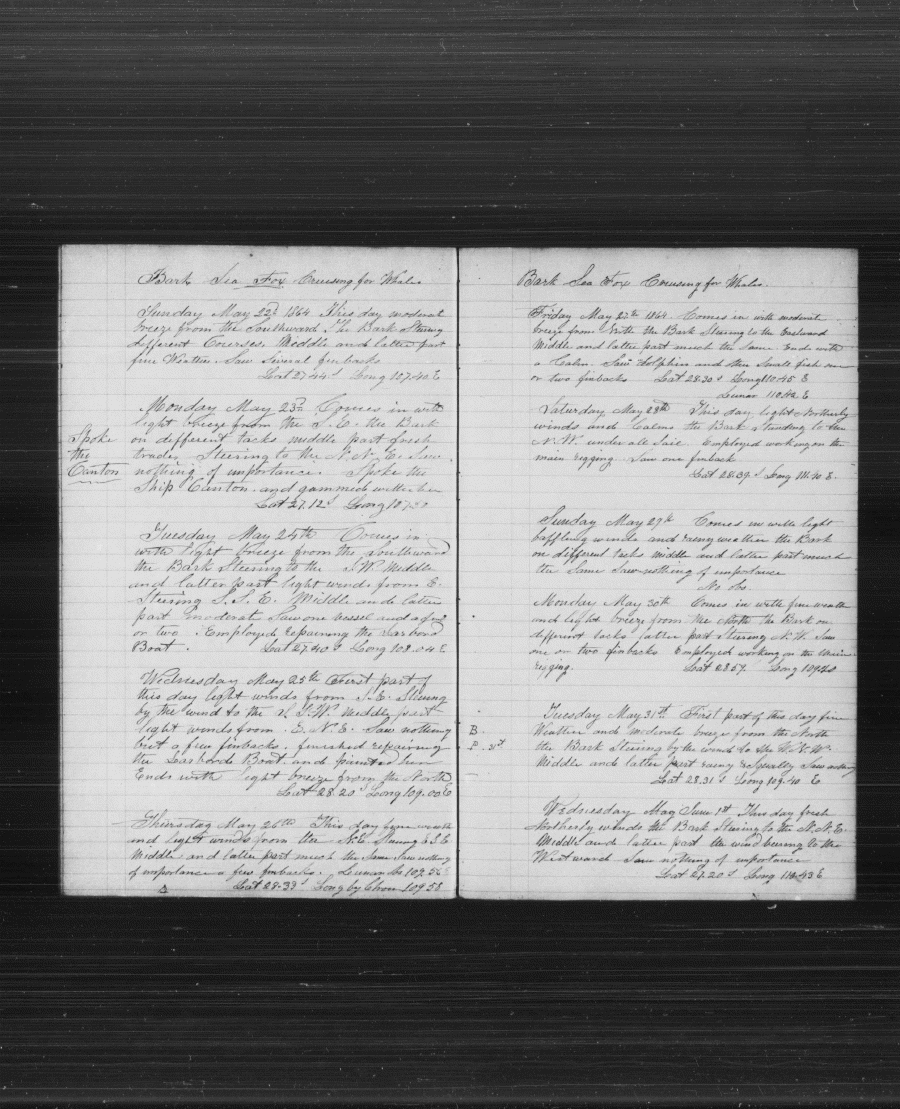 Bark Sea Fox Cruising for Whales
Sunday May 22d 1864 This day moderate
breeze from the Southward. The Bark Steering
different Courses. Middle and latter part
fine Weather. Saw Several finbacks
Lat 27.44 S Long 107.40 E
Monday May 23d Comes in with
light breeze from the S.E. the Bark
on different tacks middle part fresh
trades Steering to the N.N.E. Saw
nothing of importance. Spoke the
Ship Canton and gammed with her
Lat 27.12 S Long 107.30
Spoke
the
Canton
Tuesday May 24th Comes in
with light breeze from the Southward
the Bark Steering to the S.W. Middle
and latter part light winds from E.
Steering S.S.E. Middle and latter
part moderate Saw one vessel and a fin
or two. Employed repairing the Larbord
Boat. Lat 27.40 S Long 108.04 E
Wednesday May 25th First part of
this day light winds from S.E. Steering
by the wind to the S.W. Middle part
light winds from E.N.E. Saw nothing
but a few finbacks. finished repairing
the Larbord Boat and painted her
Ends with light breeze from the North
Lat 28.20 S Long 109.00 E
Thursday May 26th This day fine weather
and Light winds from the N.E. Steering E S E
Middle and latter part much the Same Saw nothing
of importance a few finbacks. Lunar Obs 109.56 E
Lat 28.33 S Long by Chron 109.58
Bark Sea Fox Cruising for Whales
Friday May 27th 1864. Comes in with moderate
breeze from North the Bark Steering to the Eastward
Middle and latter part much the Same Ends with
a Calm. Saw dolphins and other Small fish one
or two finbacks Lat 28.30 S Long 110.45 E
Lunar 110.42 E
Saturday May 28th This day light Northerly
winds and Calms the Bark Standing to the
N.W. under all Sail Employed working on the
main rigging. Saw one finback
Lat 28.39 S Long 111.40 E.
Sunday May 29th Comes in with light
baffling winds and rainy weather the Bark
on different tacks middle and latter part much
the Same Saw nothing of importance
No Obs.
Monday May 30th Comes in with fine weather
and light breeze from the North the Bark on
different tacks latter part Steering N.W. Saw
one or two finbacks Employed working on the Main
rigging. Lat 28.59 Long 109.20
Tuesday May 31st First part of this day fine
Weather and moderate breeze from the North
the Bark Steering by the wind to the W.N.W.
Middle and latter part rainy & Squally Saw nothing
Lat 28.31 S Long 109.40 E
B.
P. 31st
Wednesday May June 1st This day fresh
Northerly winds the Bark Steering to the N.N.E.
Middle and latter part the wind bearing to the
Westward Saw nothing of importance
Lat 27.20 S Long 110.43 E